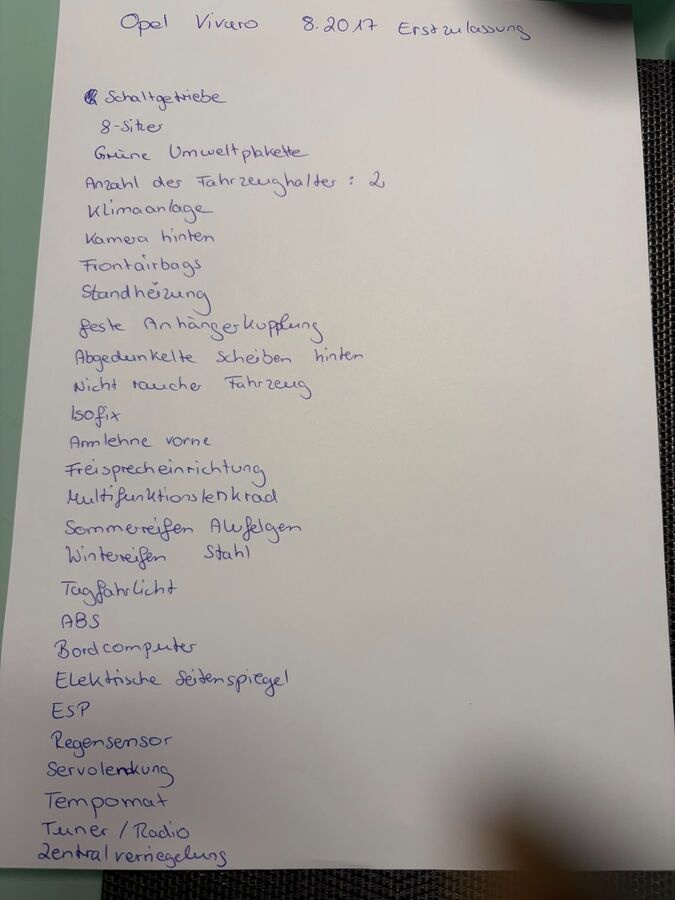 Opel Vivaro 8.2017 Erstzulassung
Schaltgetriebe
8-Sitzer
Grüne Umweltplakette
Anzahl der Fahrzeughalter : 2
Klimaanlage
Kamera hinten
Frontairbags
Standheizung
feste Anhängerkupplung
Abgedunkelte Scheiben hinten
Nicht raucher Fahrzeug
Isofix
Armlehne vorne
Freisprecheinrichtung
Multifunktionslenkrad
Sommereifen Alufelgen
Wintereifen Stahl
Tagfahrlicht
ABS
Bordcomputer
Elektrische Seitenspiegel
ESP
Regensensor
Servolenkung
Tempomat
Tuner / Radio
Zentralverriegelung